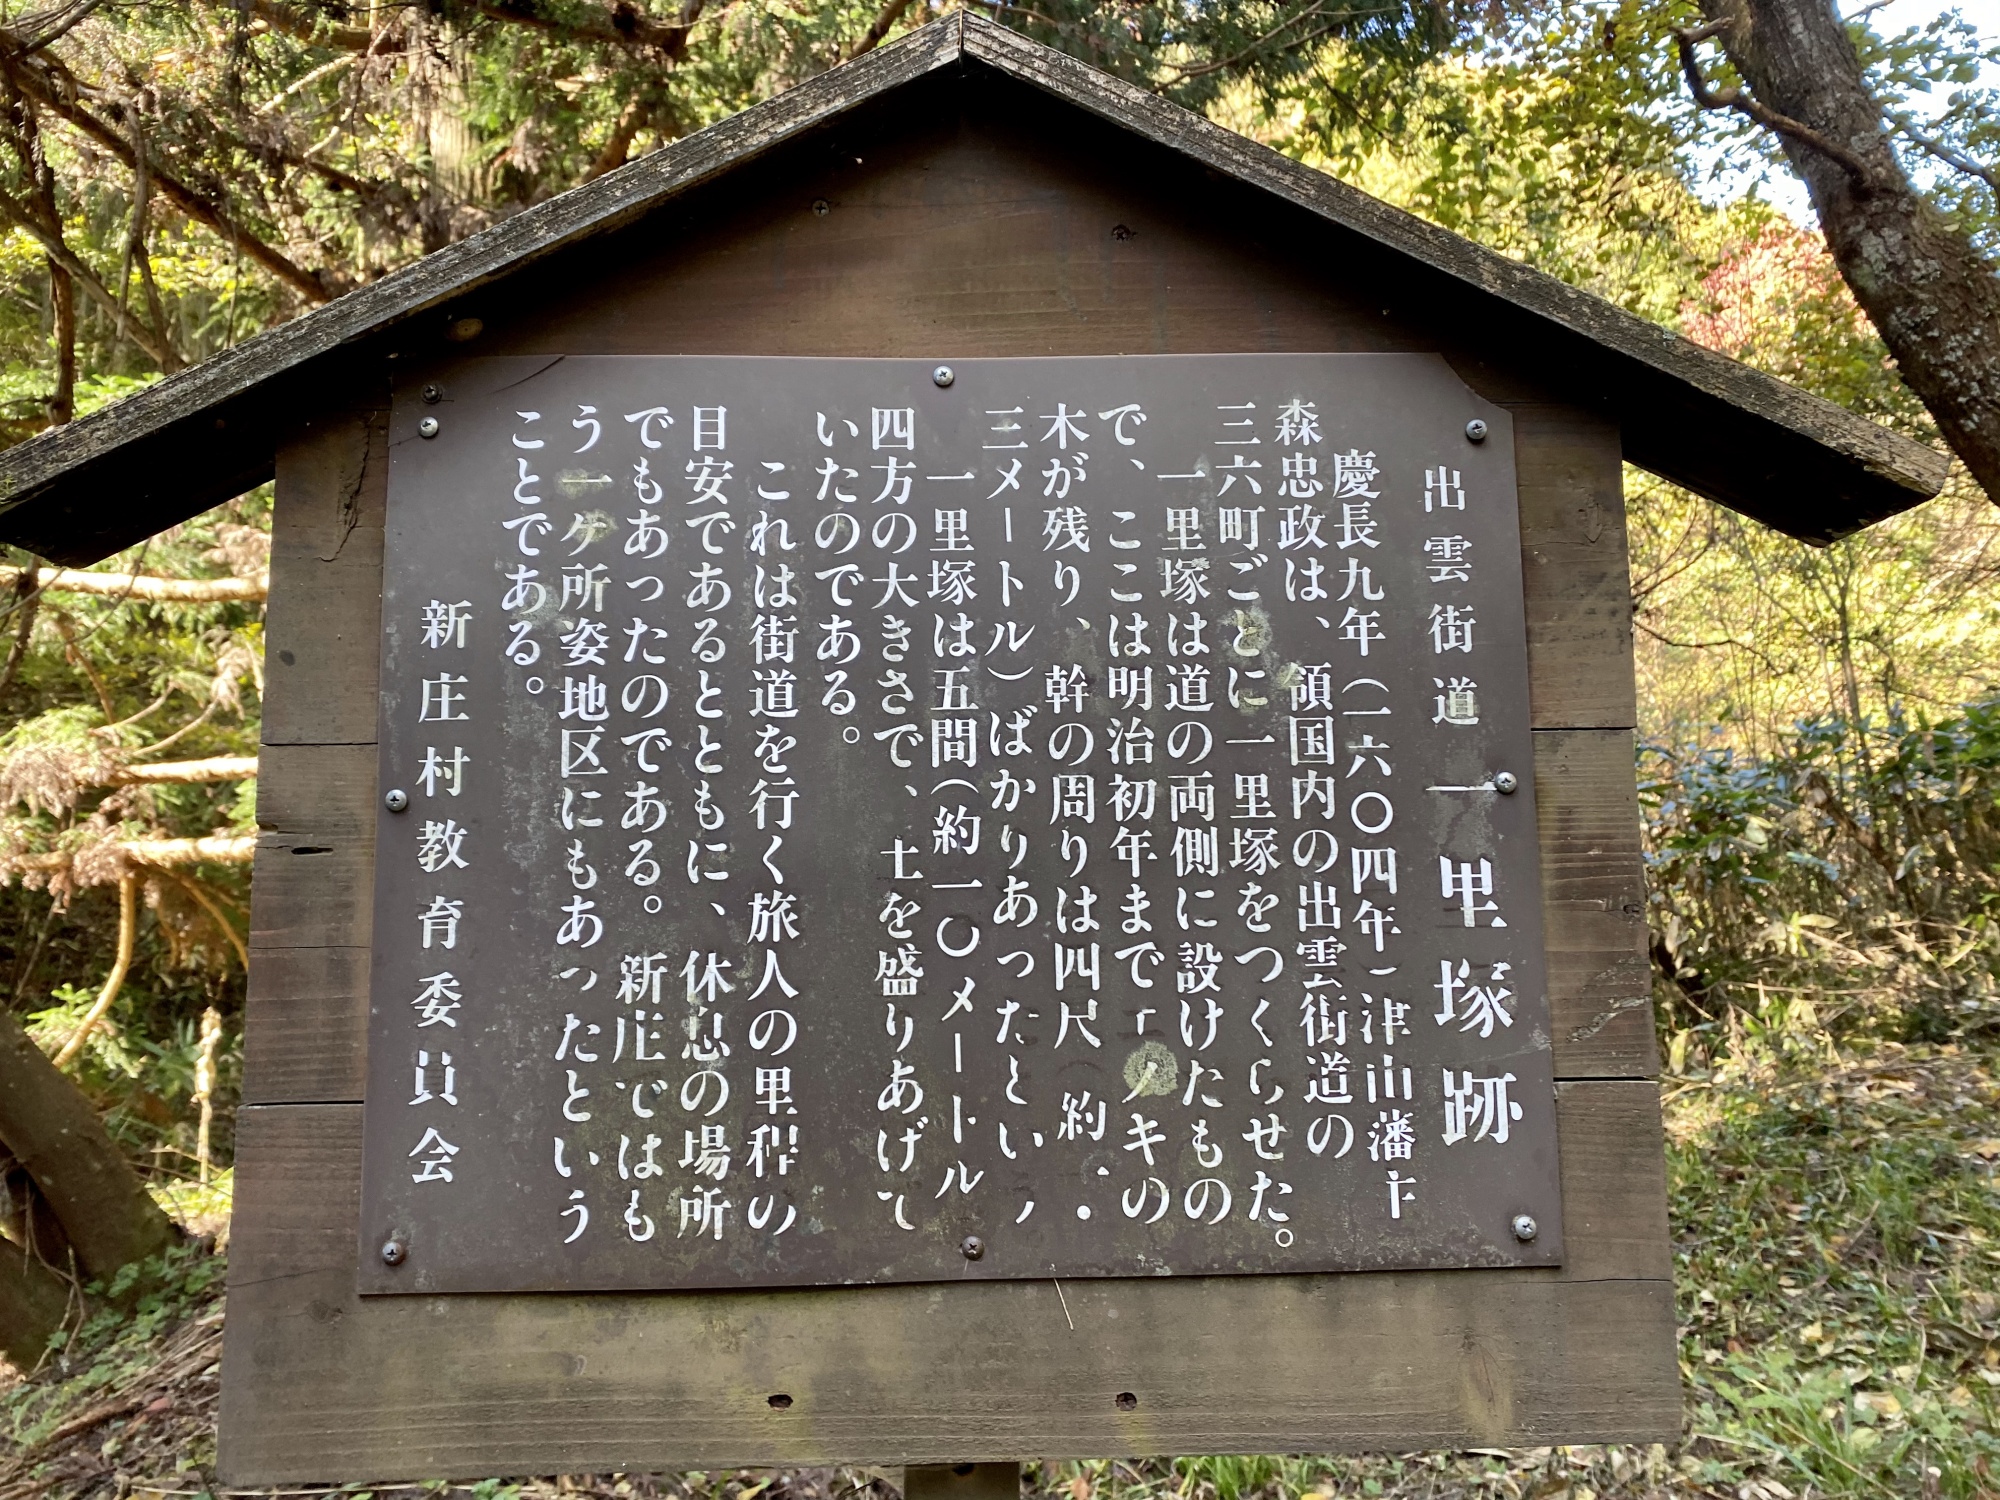 出雲街道 一里塚跡
慶長九年（一六〇四年）津山藩主
森忠政は、領国内の出雲街道の
三六町ごとに一里塚をつくらせた。
一里塚は道の両側に設けたもの
で、ここは明治初年までエノキの
木が残り、幹の周りは四尺（約一・
三メートル）ばかりあったという。
一里塚は五間（約一〇メートル
四方の大きさで、土を盛りあげて
いたのである。
これは街道を行く旅人の里程の
目安であるとともに、休息の場所
でもあったのである。新庄ではも
う一ケ所姿地区にもあったという
ことである。
新庄村教育委員会